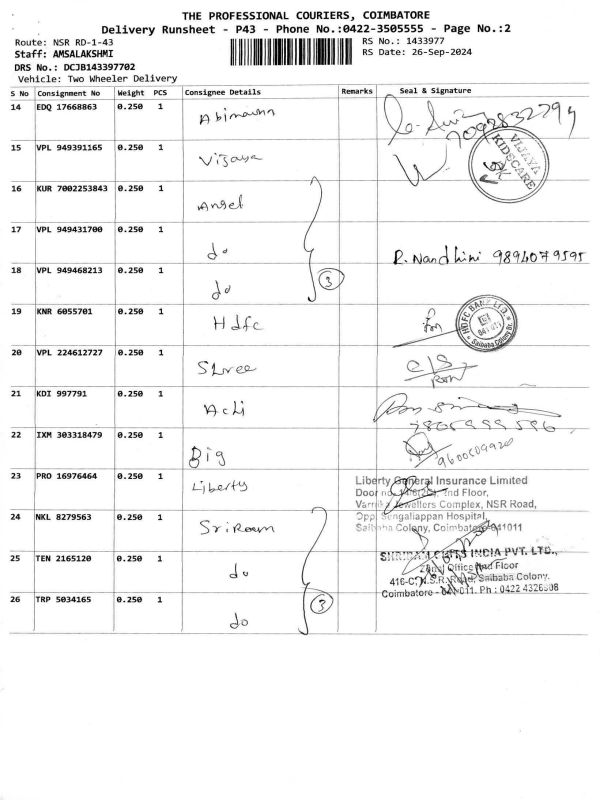 THE PROFESSIONAL COURIERS, COIMBATORE
Delivery Runsheet - P43 - Phone No.:0422-3505555 - Page No.:2
Route: NSR RD-1-43 RS No.: 1433977
Staff: AMSALAKSHMI RS Date: 26-Sep-2024
DRS No.: DCJB143397702
Vehicle: Two Wheeler Delivery
S No Consignment No Weight PCS Consignee Details Remarks Seal & Signature
14 EDQ 17668863 0.250 1 Abimanan
15 VPL 949391165 0.250 1 Vijaya VIJAYA KIDSCARE
16 KUR 7002253843 0.250 1 Angel
17 VPL 949431700 0.250 1 do R. Nandhini 9894079595
18 VPL 949468213 0.250 1 do 3
19 KNR 6055701 0.250 1 Hdfc HDFC BANK LTD. Saibaba Colony Br.
20 VPL 224612727 0.250 1 Shree
21 KDI 997791 0.250 1 Achi
22 IXM 303318479 0.250 1 Big
23 PRO 16976464 0.250 1 Liberty Liberty General Insurance Limited
2nd Floor,
Jewellers Complex, NSR Road,
Opp. Sengaliappan Hospital,
24 NKL 8279563 0.250 1 SriRam Saibaba Colony, Coimbatore-641011
25 TEN 2165120 0.250 1 do SHRIRAM CHITS INDIA PVT. LTD.,
Office 2nd Floor
416-C, N.S.R. Road, Saibaba Colony.
26 TRP 5034165 0.250 1 do 3 Coimbatore - 641011. Ph : 0422 4326808